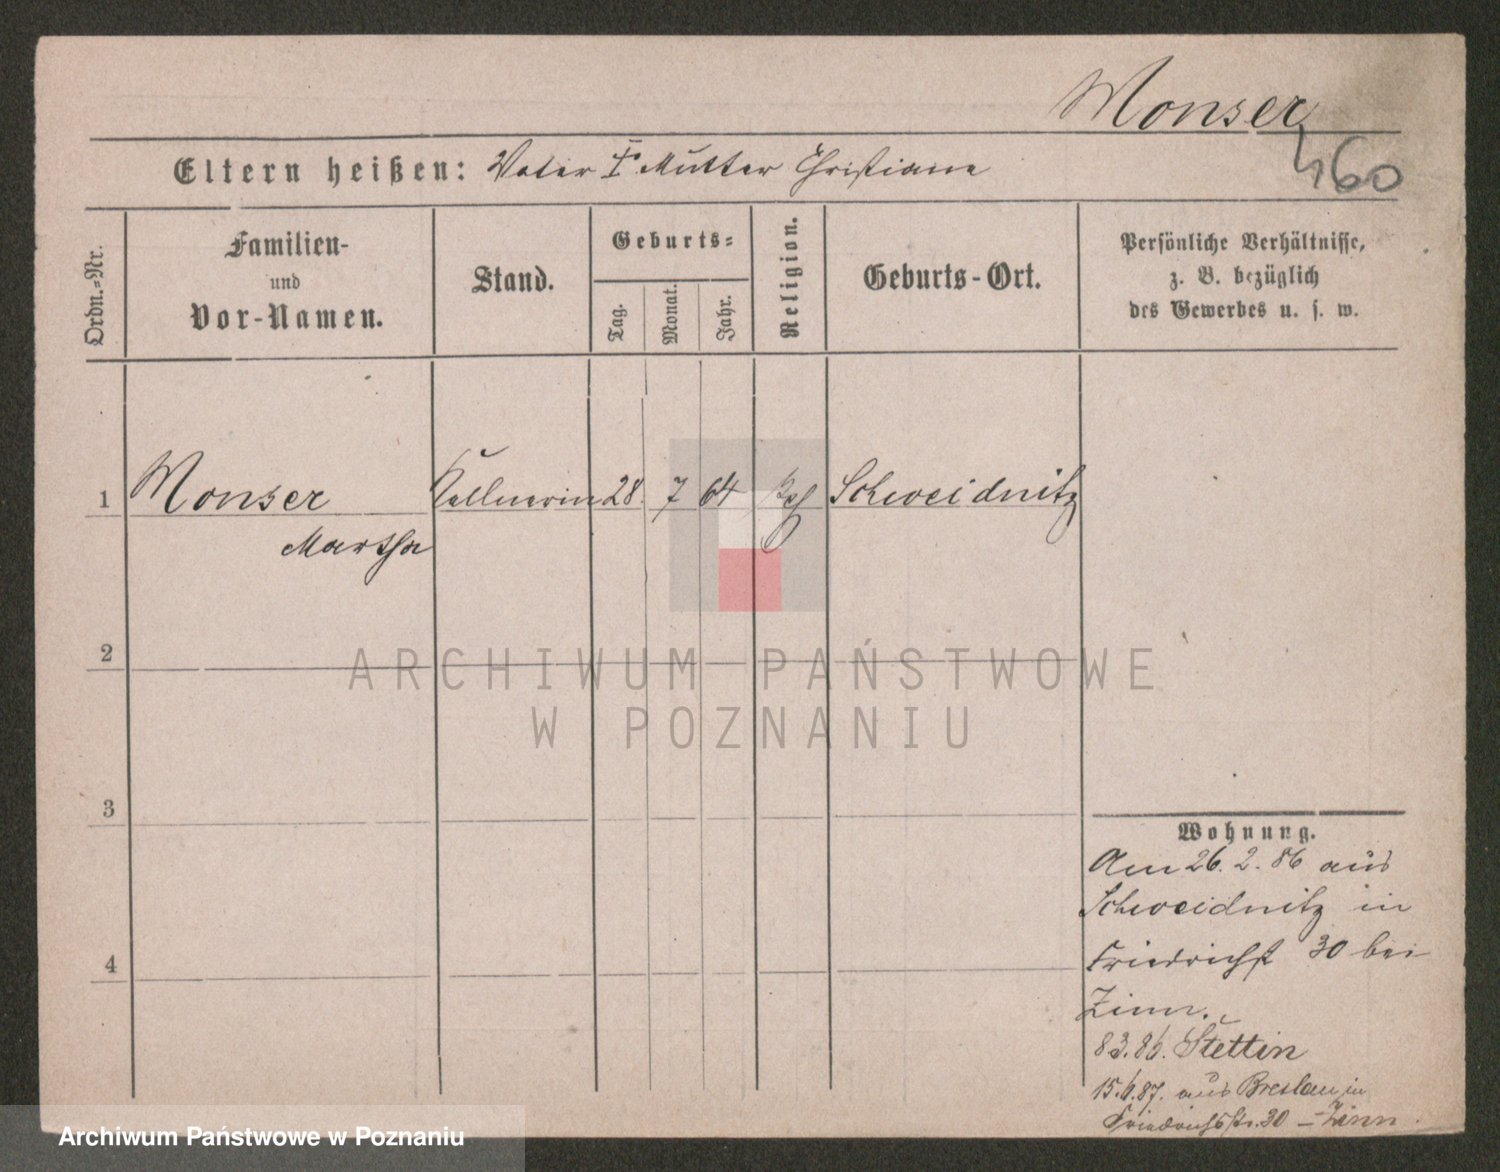 Monser
460
Eltern heißen: Vater † Mutter Christiane
Ordn.-Nr.
Familien- und Vor-Namen.
Stand.
Geburts-
Tag.
Monat.
Jahr.
Religion.
Geburts-Ort.
Persönliche Verhältnisse,
z. B. bezüglich
des Gewerbes u. s. w.
1 Monser Kellnerin 28. 7 64 Schweidnitz
Martha
2
3
4
Wohnung.
Am 26. 2. 86 aus
Schweidnitz in
Friedrichst 30 bei
Zinn.
8 3. 86. Stettin
15.6.87. aus Breslau in
Friedrichstr. 30 – Zinn.
ARCHIWUM PAŃSTWOWE
W POZNANIU
Archiwum Państwowe w Poznaniu